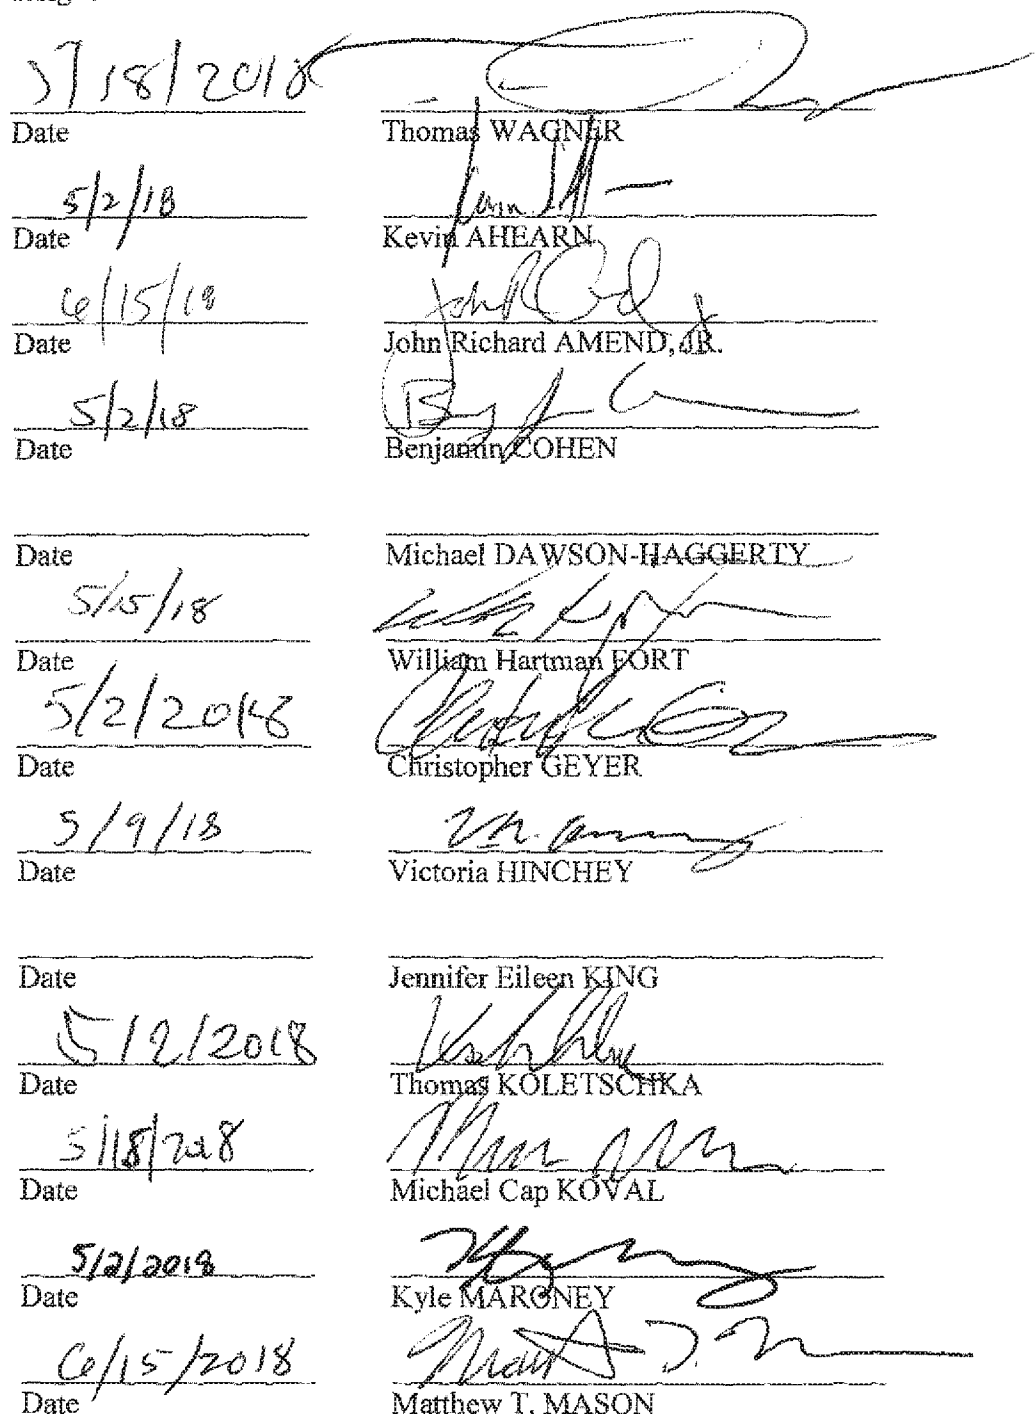 5/18/2018
Date Thomas WAGNER
5/2/18
Date Kevin AHEARN
6/15/18
Date John Richard AMEND, JR.
5/2/18
Date Benjamin COHEN
Date Michael DAWSON-HAGGERTY
5/15/18
Date William Hartman FORT
5/2/2018
Date Christopher GEYER
5/9/18
Date Victoria HINCHEY
Date Jennifer Eileen KING
5/2/2018
Date Thomas KOLETSCHKA
5/18/2018
Date Michael Cap KOVAL
5/2/2018
Date Kyle MARONEY
6/15/2018
Date Matthew T. MASON